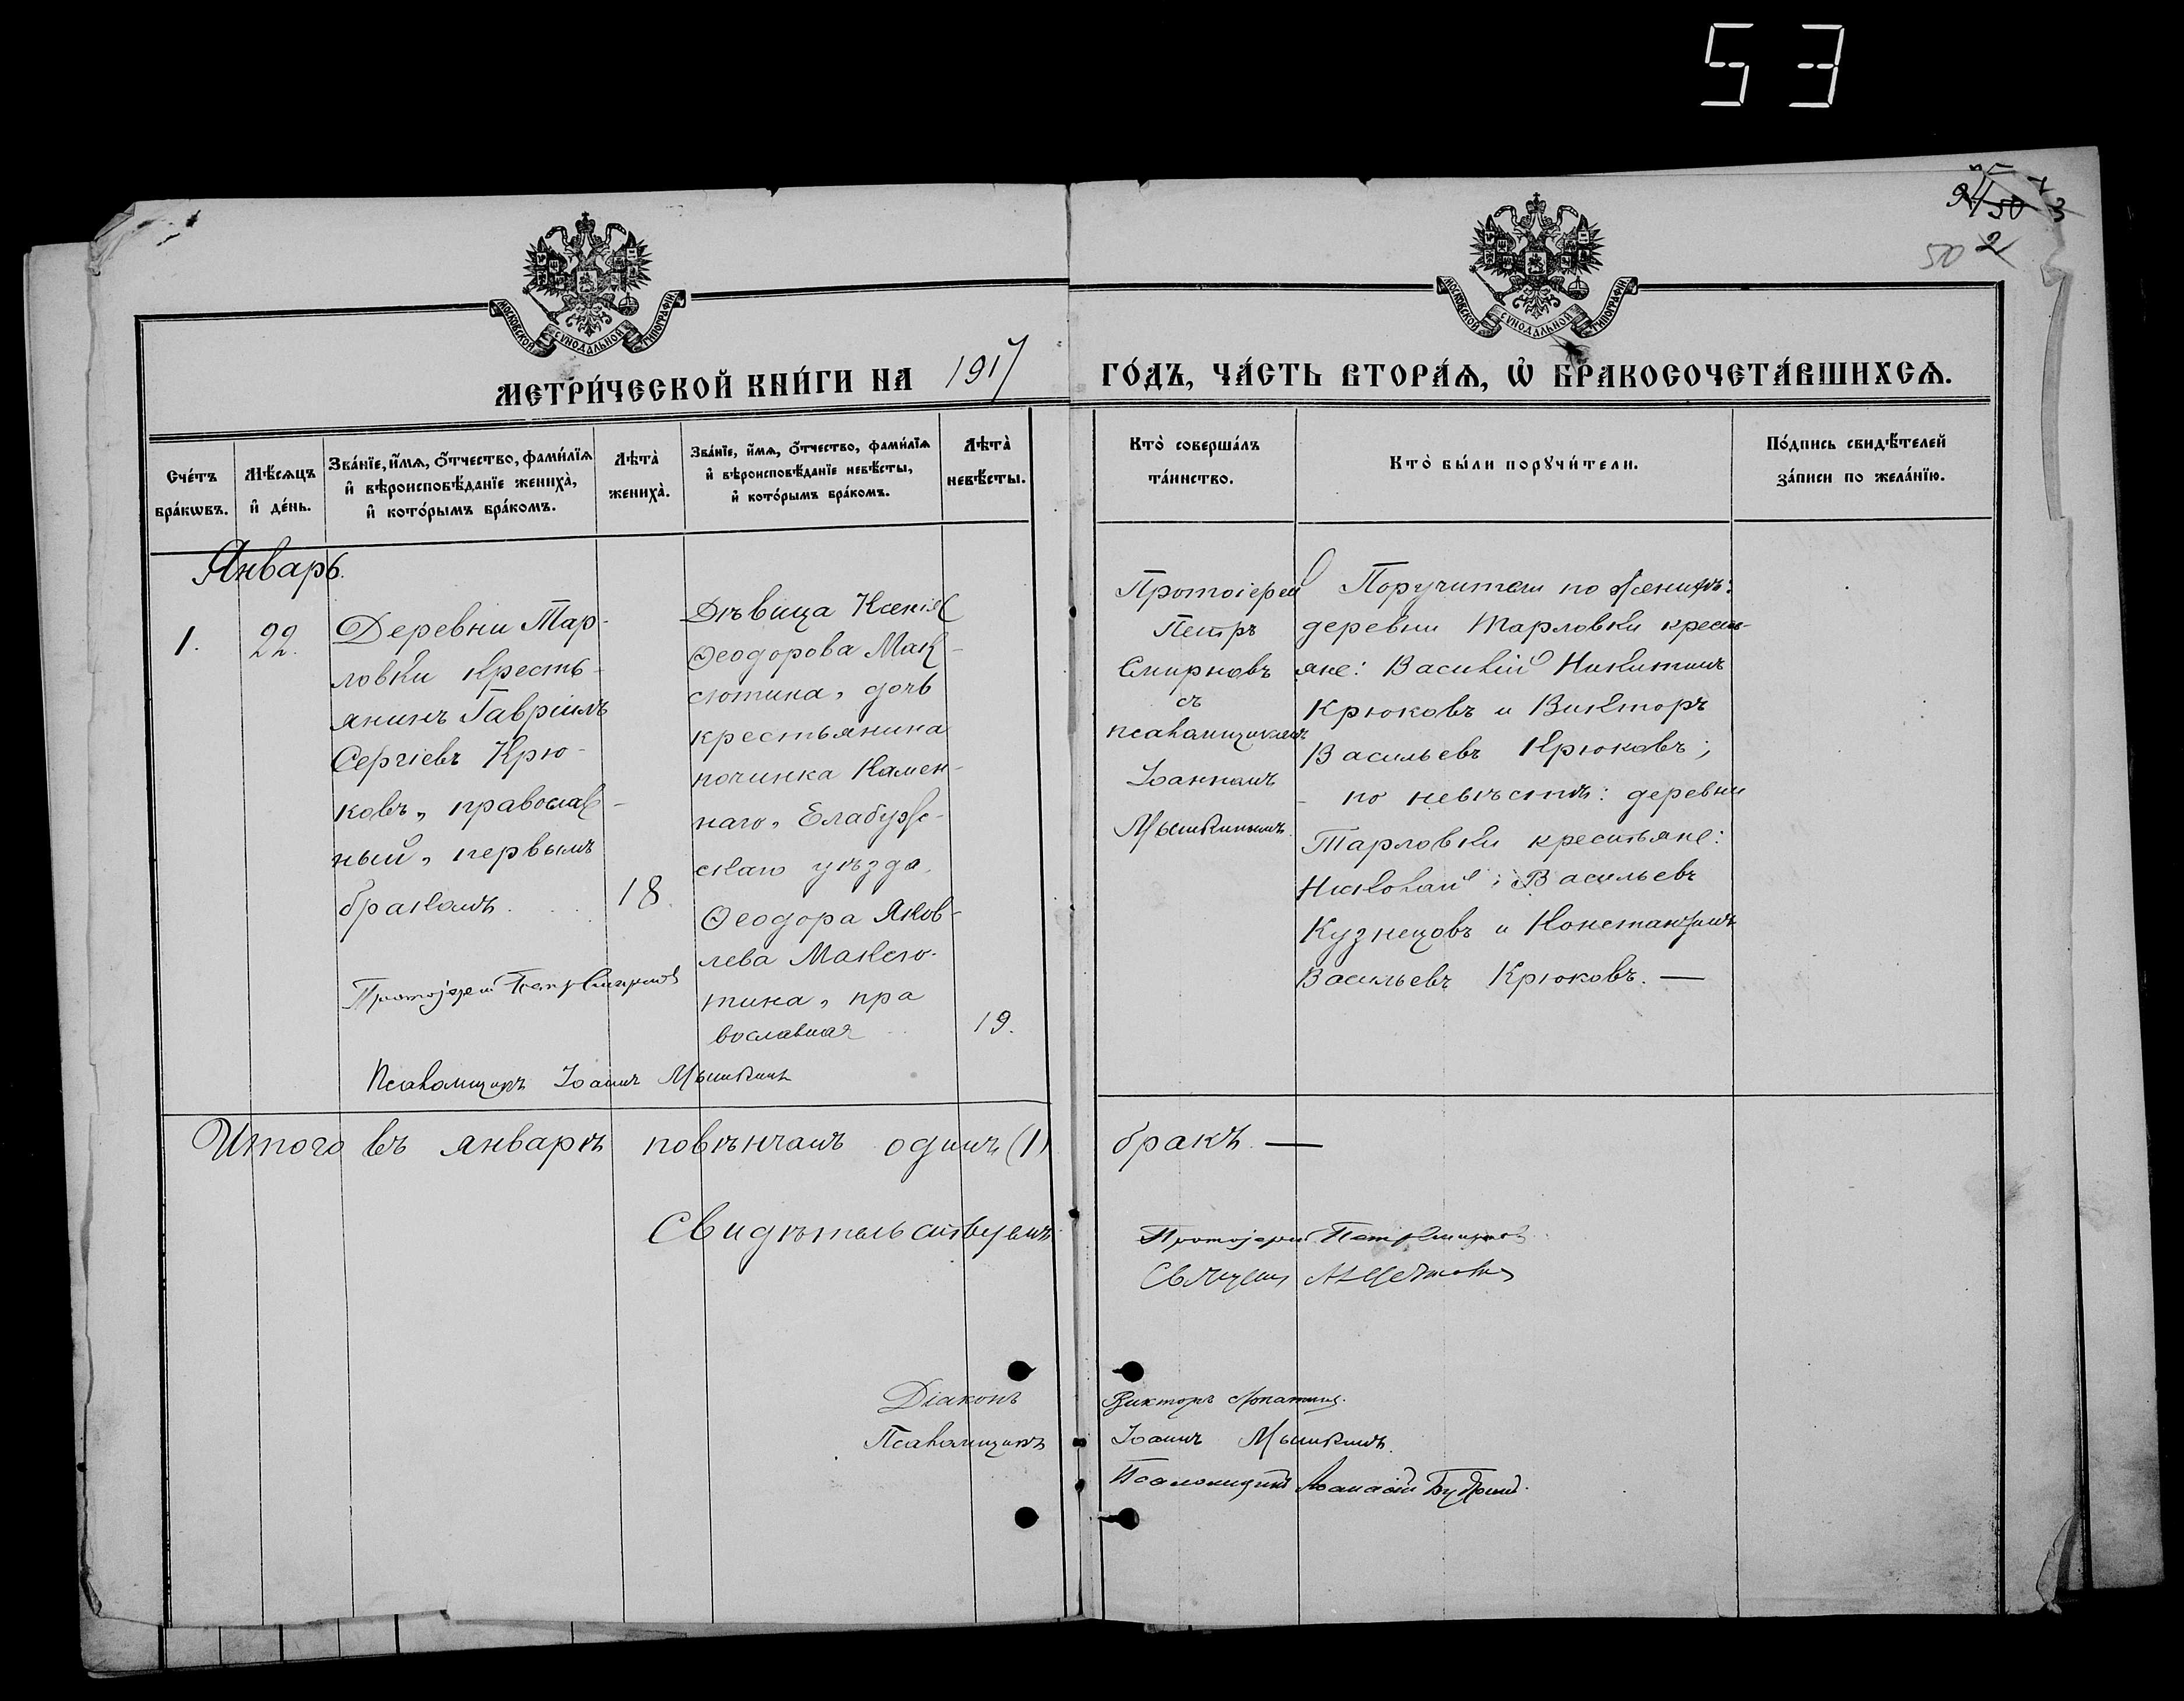 53
50 2
МОСКОВСКОЙ СУНОДАЛЬНОЙ ТИПОГРАФІИ
МОСКОВСКОЙ СУНОДАЛЬНОЙ ТИПОГРАФІИ
МЕТРИ́ЧЕСКОЙ КНИ́ГИ НА 1917 ГО́ДЪ, ЧА́СТЬ ВТОРА́Ѧ, Ѡ҆ БРАКОСОЧЕТА́ВШИХСѦ.
Сче́тъ бра́кѡвъ.
Мѣ́сяцъ и҆ де́нь.
Зва́нїе, и҆́мя, о҆́тчество, фами́лїя и҆ вѣроисповѣ́данїе жениха̀, и҆ кото́рымъ бра́комъ.
Лѣта̀ жениха̀.
Зва́нїе, и҆́мя, о҆́тчество, фами́лїя и҆ вѣроисповѣ́данїе невѣ́сты, и҆ кото́рымъ бра́комъ.
Лѣта̀ невѣ́сты.
Кто̀ соверша́лъ та́инство.
Кто̀ бы́ли порꙋчи́тели.
По́дпись свидѣ́телей за́писи по жела́нїю.
Январь.
1.
22.
Деревни Тар-
ловки кресть-
янинъ Гавріилъ
Сергіевъ Крю-
ковъ, православ-
ный, первымъ
бракомъ.
18.
Протоіерей Петръ Смирновъ
Псаломщикъ Іоаннъ Мышкинъ
Дѣвица Ксенія
Ѳеодорова Мак-
сютина, дочь
крестьянина
починка Камен-
наго, Елабуж-
скаго уѣзда,
Ѳеодора Яков-
лева Максю-
тина, пра
вославная
19.
Протоіерей
Петръ
Смирновъ
съ
псаломщикомъ
Іоанномъ
Мышкинымъ.
Поручители по женихѣ:
деревни Тарловки кресть-
яне: Василій Никитинъ
Крюковъ и Викторъ
Васильевъ Крюковъ;
- по невѣстѣ: деревни
Тарловки крестьяне:
Николай Васильевъ
Кузнецовъ и Константинъ
Васильевъ Крюковъ. —
Итого въ январѣ повѣнчанъ одинъ (1) бракъ. —
Свидѣтельствуемъ:
Протоіерей Петръ Смирновъ
Священ
Діаконъ Викторъ Лопатинъ.
Псаломщикъ Іоаннъ Мышкинъ.
Псаломщикъ